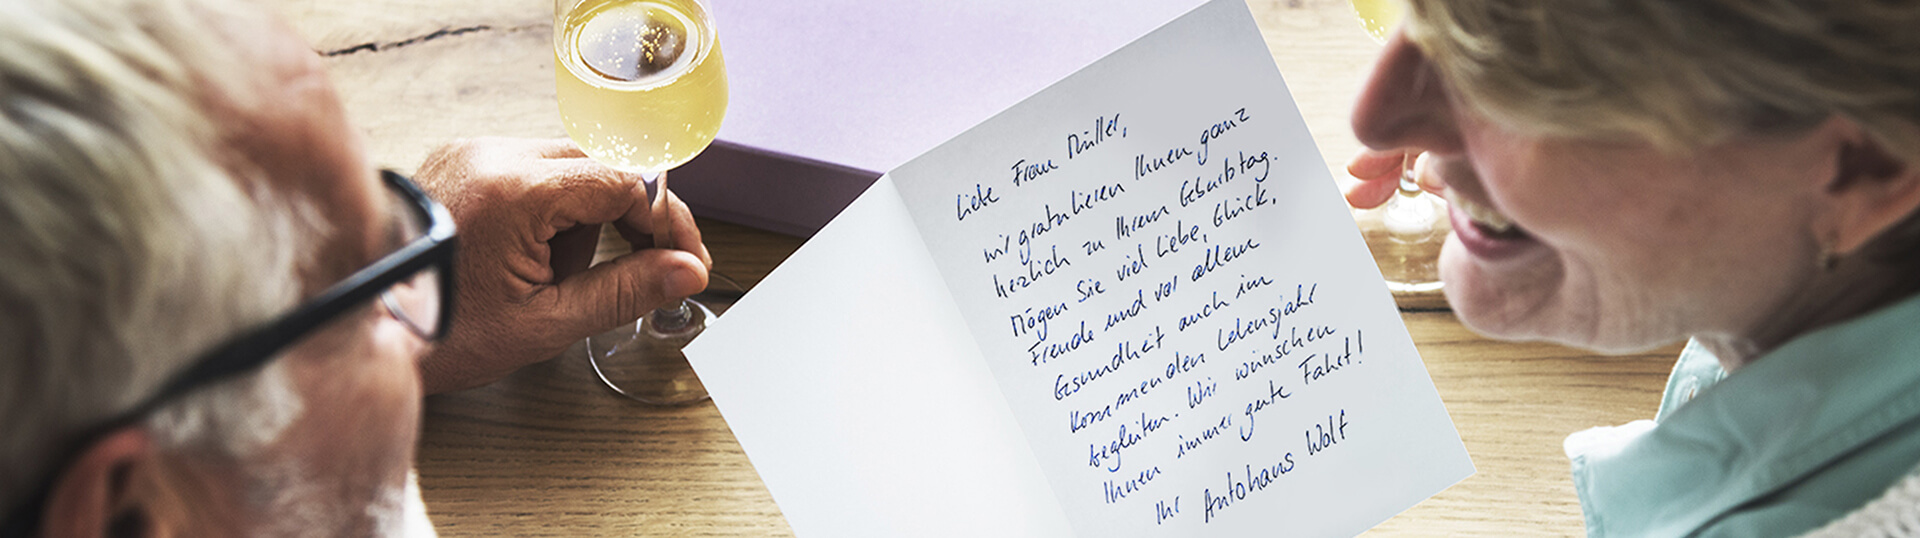 Liebe Frau Müller,
wir gratulieren Ihnen ganz
herzlich zu Ihrem Geburtstag.
Mögen Sie viel Liebe, Glück,
Freude und vor allem
Gesundheit auch im
kommenden Lebensjahr
begleiten. Wir wünschen
Ihnen immer gute Fahrt!
Ihr Autohaus Wolf